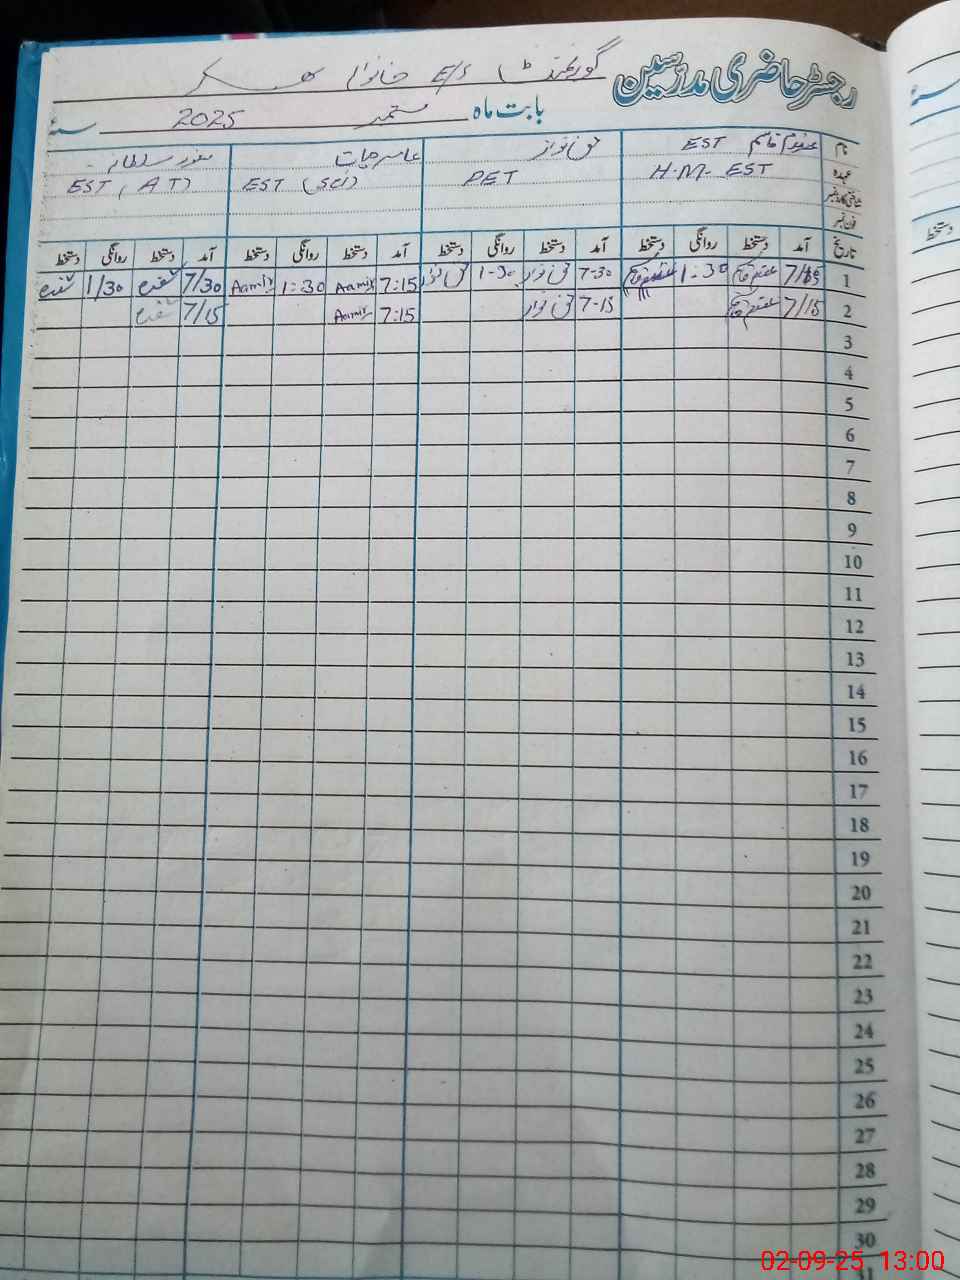 رجسٹر حاضری مدرسین
گورنمنٹ E/S
بابت ماہ ستمبر 2025 سنہ
نام EST حق نواز عامر حیات
عہدہ H.M- EST PET EST (SCI) EST (AT)
شناختی کارڈ نمبر
فون نمبر
تاریخ آمد دستخط روانگی دستخط آمد دستخط روانگی دستخط آمد دستخط روانگی دستخط آمد دستخط روانگی دستخط
1 1:30 7-30 حق نواز 1-30 حق نواز 7:15 Aamir 1:30 Aamir 7/30 1/30
2 7/15 7-15 حق نواز 7:15 Aamir 7/15
3
4
5
6
7
8
9
10
11
12
13
14
15
16
17
18
19
20
21
22
23
24
25
26
27
28
29
30
02-09-25 13:00
دستخط